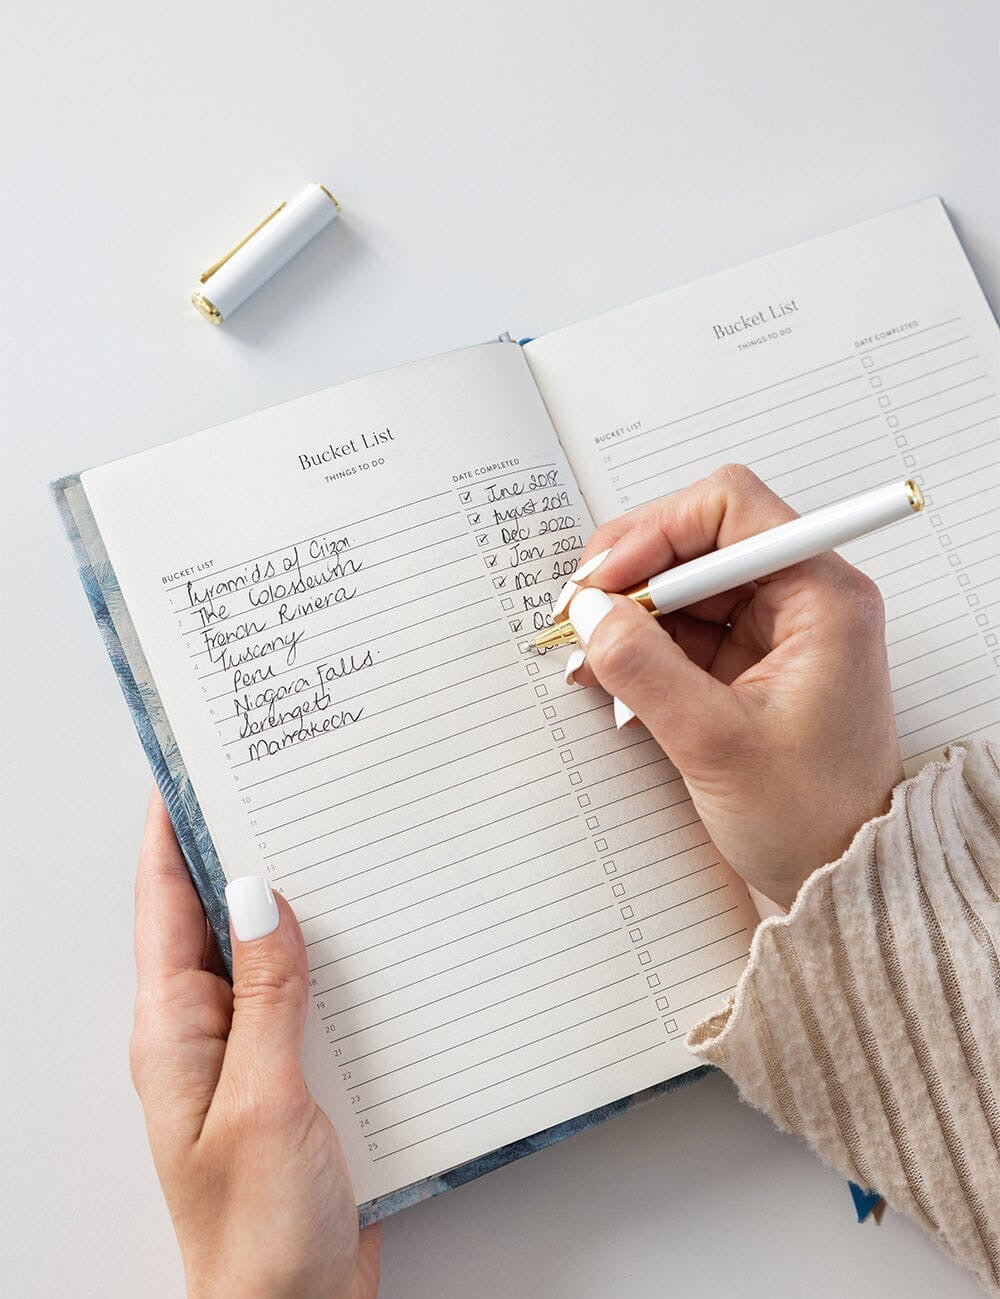 Bucket List
THINGS TO DO
BUCKET LIST DATE COMPLETED
1 Pyramids of Gizan. June 2018
2 The Colosseum August 2019
3 French Riviera Dec 2020.
4 Tuscany Jan 2021
5 Peru Mar 202
6 Niagara Falls. Aug
7 Serengeti Oc
8 Marrakech
9
10
11
12
13
18
19
20
21
22
23
24
25
Bucket List
THINGS TO DO
BUCKET LIST DATE COMPLETED
26
27
28